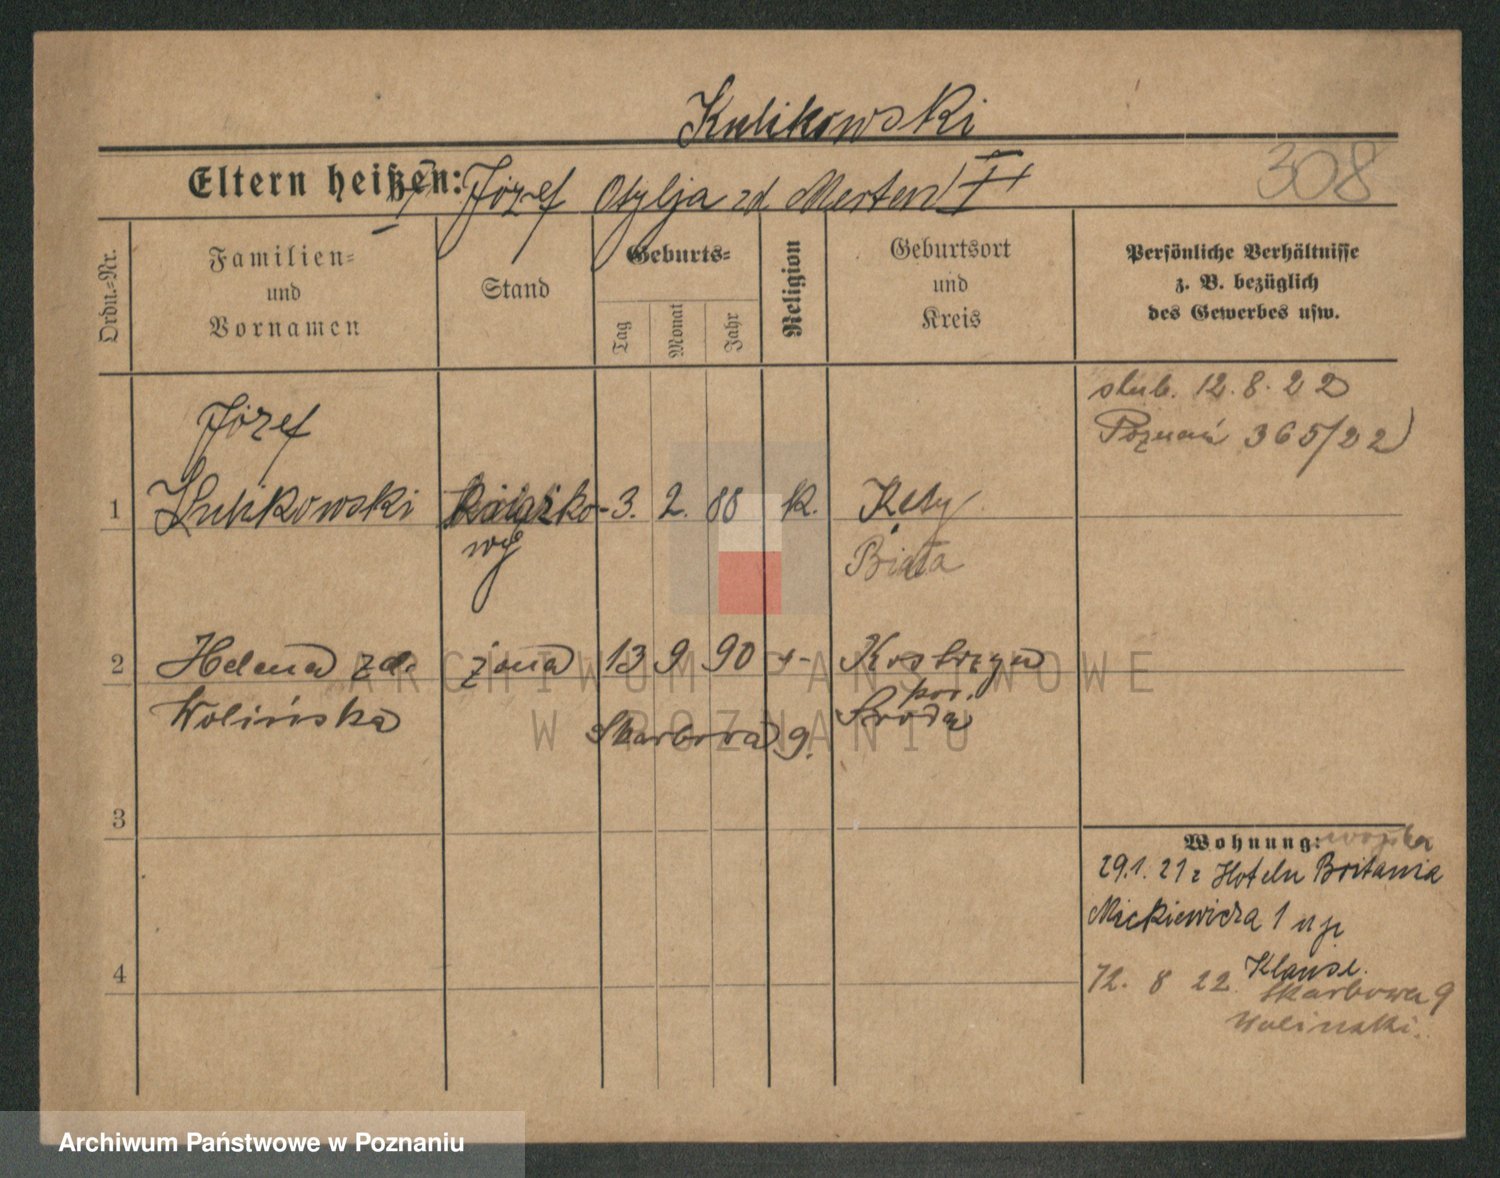 Kulikowski
308
Eltern heißen: Józef Otylja zd. Merten
Ordn.=Nr.
Familien=
und
Vornamen
Stand
Geburts=
Tag
Monat
Jahr
Religion
Geburtsort
und
Kreis
Persönliche Verhältnisse
z. B. bezüglich
des Gewerbes usw.
ślub. 12.8.22
Poznań 365/22
1
Józef
Kulikowski
3. 2. 88 k. Kęty
wy
Biała
2
Helena zd.
Wolińska
żona 13 9 90 Kostrzyn
pow.
Środa
Skarbowa 9.
3
4
Wohnung:
29.1.21 z Hotelu Britania
Mickiewicza 1
12. 8 22 Skarbowa 9
Wolinski
ARCHIWUM PAŃSTWOWE
W POZNANIU
Archiwum Państwowe w Poznaniu